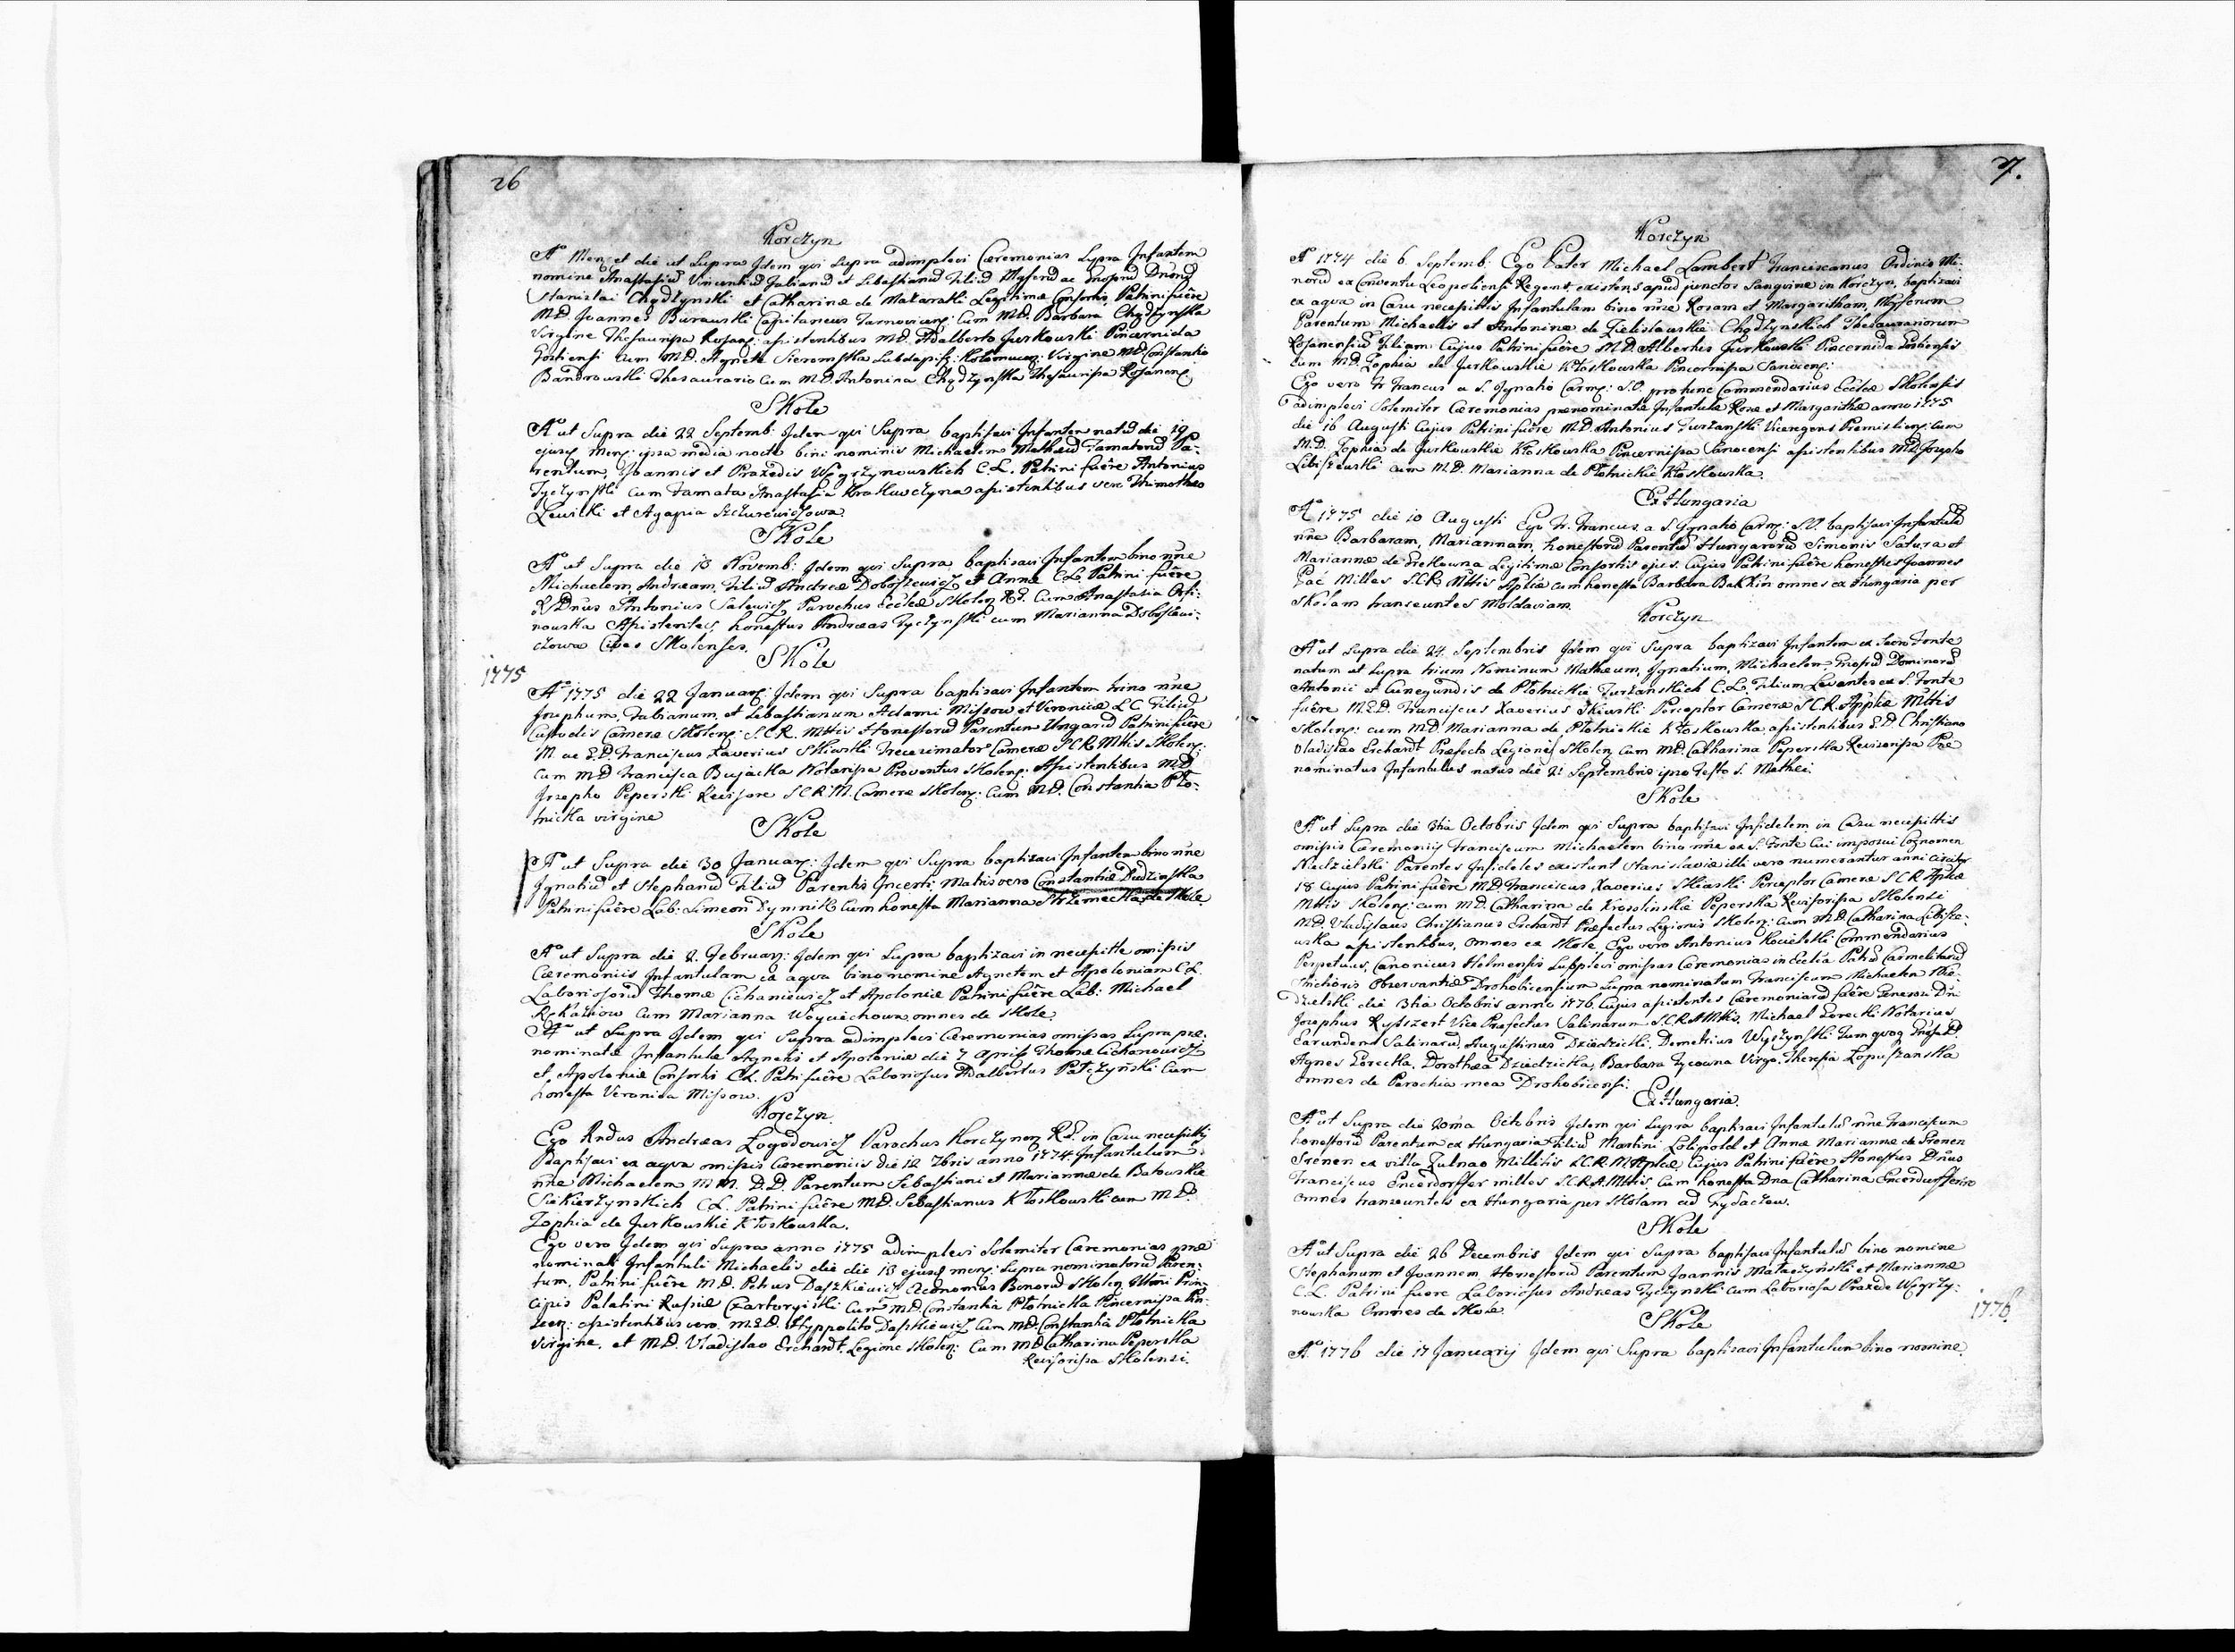 26
Korczyn
A Men et die ut Supra Idem qui Supra adimplevi Cæremonias Supra Infantem
nomine Anastasiū Vincentiū Julianū et Sebastianū Filiū Mgforū ac Gnosorū Dnorū
Stanislai Chądzynski et Catharinæ de Makaratki Legitimæ Consortis, Patrini fuêre
MD Joannes Burawski Capitaneus Tarnovicens: Cum MD. Barbara Chądzynska
Virgine Thesaurissa Rosaen: assistentibus MD. Adalberto Jurkowski Pincernida
Gostiensi Cum MD. Agnete Sieromska Subdapif: Kolomucen: Virgine MD Constantio
Bandrowski Thesaurario Cum MD Antonina Chądzynska Thesaurissa Rosanens
Skole
Aº ut Supra die 22 Septemb: Idem qui Supra baptisavi Infantem natū die 19
ejusq mens: ipsa media nocte bini nominis Michaelem Mathæū Famatorū Pa-
rentum, Joannis et Praxedis Węgrzynowskich C.L. Patrini fuêre Antonius
Tyczynski cum Famata Anastasia Krakuwczyna assistentibus vero Thimotheo
Lewicki et Agapia Szczurewiczowa
Skole
Aº ut Supra die 18 Novemb: Idem qui Supra baptisavi Infantem bino nñe
Michaelem, Andream, Filiū Andreæ Doboszewicz et Annæ C:L: Patrini fuêre
R Dnus Antonius Salewicz Parochus Ecclæ Skolen R.G. Cum Anastasia Orsi-
nowska Assistentes honestus Andreas Tyczynski cum Marianna Doboszewi-
czowa Cives Skolenses.
1775
Skole
Aº 1775 die 22 Januar: Idem qui Supra baptisavi Infantem trino nñe
Josephum, Fabianum, et Sebastianum Adami Missow et Veronicæ L.C. Filiū
Custodis Cameræ Skolens: S.C.R. Mttis Honestorū Parentum Ungarū Patrini fuêre
M. ac G.D. Franciscus Xaverius Skiwski Trecesimator Cameræ SCR Mttis Skolen:
Cum MD Francisca Bujacka Notarissa Proventus Skolens: Assistentibus M.D
Josepho Peperski Revisore SCRM. Cameræ Skolen: Cum MD. Constantia Pło-
tnicka virgine
Skole
Aº ut Supra die 30 Januar: Idem qui Supra baptisavi Infantem bino nñe
Ignatiū et Stephanū Filiū Parentis Incerti, Matris vero Constantiæ Dudzinska
Patrini fuêre Lab: Simeon Dymnik Cum honesta Marianna Strzemecka, de Skole
Skole
Aº ut Supra die 2. Februar: Idem qui Supra baptizavi in necessitte omissis
Cæremoniis Infantulam ex aqva bino nomine Agnetem et Apoloniam C.L.
Laboriosorū Thomæ Cichaniewicz et Apoloniæ Patrini fuêre Lab: Michael
Rękaznow Cum Marianna Woyciechowa omnes de Skole.
Aº ut Supra Idem qui Supra adimplevi Cæremonias omissas Supra præ-
nominatæ Infantulæ Agnetis et Apoloniæ die 7 Aprilis Thomæ Cichanowicz
et Apoloniæ Consortis C.L. Patri fuêre Laboriosus Adalbertus Patczyński Cum
honesta Veronica Missow.
Korczyn
Ego Rndus Andreas Łogodowicz Parochus Korczynen R.G. in Casu necessittis
Baptisavi ex aqva omissis Cæremoniis die 12 7bris anno 1774 Infantulum
nñe Michaelem M.M. D.D. Parentum Sebastiani et Mariannæ de Batowskie
Siekierzynskich C.L. Patrini fuêre M.D. Sebastianus Kłoskowski cum M.D.
Zophia de Jurkowskie Kłoskowska.
Ego vero Idem qui Supra anno 1775 adimplevi Solemniter Cæremonias præ
nominati Infantuli Michaelis die die 18 ejusq mens: Supra nominatorū Paren-
tum, Patrini fuêre M.D. Petrus Daszkiewicz Æconomus Bonorū Skolen Illmi Prin-
cipis Palatini Russiæ Czartoryiski Cum MD. Constantia Płotnicka Pincernissa Pin-
scen: assistentibus vero M.G.D. Hyppolito Daszkiewicz Cum MD. Constantia Płotnicka
Virgine, et M.D. Vladislao Erchardt, Legione Skolen: Cum MD Catharina Peperska
Revisorissa Skolensi.
27.
Korczyn
A 1774 die 6 Septemb: Ego Pater Michael Lambert Franciscanus Ordinis Mi-
norū ex Conventu Leopoliensi Regens existens apud junctos Sanguine in Korczyn, baptisavi
ex aqva in Casu necessittis Infantulam bino nñe Rosam et Margaritham, Mgforum
Parentum Michaelis et Antoninæ de Zielislawskie Chądzynskich Thesaurariorum
Rosanensiū Filiam Cujus Patrini fuêre M.D. Albertus Jurkowski Pincernida Gostiensis
Cum MD. Zophia de Jurkowskie Kłoskowska Pincernissa Sanocens:
Ego vero Fr Francus a S. Ignatio Carm: S.O. pro tunc Commendarius Ecclæ Skolensis
adimplevi Solemniter Cæremonias prænominatæ Infantulæ Rosæ et Margarithæ anno 1775
die 16 Augusti Cujus Patrini fuêre M.D. Antonius Turzanski Viceregens Premislien: Cum
M.D. Zophia de Jurkowskie Kłoskowska Pincernissa Sanocensi assistentibus MD. Josepho
Libiszewski cum M.D. Marianna de Płotnickie Kłoskowska
Ex Hungaria
Aº 1775 die 10 Augusti Ego Fr. Francus a S. Ignatio Carm: S.O. baptisavi Infantulā
nñe Barbaram, Mariannam, honestorū Parentū Hungarorū Simonis Satura et
Mariannæ de Grekowna Legitimæ Consortis ejus. Cujus Patrini fuêre honestus Joannes
Pac Milles S.C.R. Mttis Aplicæ cum honesta Barbara Bukkin omnes ex Hungaria per
Skolam transeuntes Moldaviam.
Korczyn
Aº ut Supra die 24 Septembris Idem qui Supra baptizavi Infantem ex Sacro Fonte
natum ut Supra trium Nominum Mathæum, Ignatium, Michaelem, Gnosorū Dominorū
Antonii et Cunegundis de Płotnickie Turzanskich C.L. Filium Levantes ex S. Fonte
fuêre M.G.D. Franciscus Xaverius Skiwski Perceptor Cameræ S.C.R. Applicæ Mttis
Skolens: cum MD. Marianna de Płotnickie Kłoskowska, assistentibus G.D. Christiano
Vladislao Erchardt Præfecto Legionis Skolen Cum MD. Catharina Peperska Revisorissa Præ
nominatus Infantulus natus die 21 Septembris ipso Festo S. Mathei.
Skole
Aº ut Supra die 3tia Octobris Idem qui Supra baptisavi Infidelem in Casu necessittis
omissis Cæremoniis Franciscum Michaelem bino nñe ex S. Fonte Cui imposui Cognomen
Niedzielski Parentes Infideles existunt Stanislaviæ illi vero numerantur anni circiter
18 Cujus Patrini fuêre M.D. Franciscus Xaverius Skiwski Perceptor Cameræ S.C.R. Aplicæ
Mttis Skolens: cum MD. Catharina de Kroslinskie Peperska Revisorissa Skolensi
M.D. Vladislaus Christianus Erchardt Præfectus Legionis Skolen: Cum M.D. Catharina Libisze-
wska assistentibus, omnes ex Skole Ego vero Antonius Kocielski Commendarius
Perpetuus, Canonicus Helmensis Supplevi omissas Cæremonias in Eclia Patrū Carmelitarū
Strictioris Observantiæ Drohobicensium Supra nominatum Franciscum Michaelem Nie-
dzielski die 3tia Octobris anno 1776. Cujus assistentes Cæremoniarū fuêre Generosi Dni
Josephus Rysszert Vice Præfectus Salinarum S.C.R.A Mttis. Michael Gorecki Notarius
Earundem Salinarū, Augustinus Dziedzicki, Demetrius Wyszynski Tum quoq Gnosæ D.
Agnes Gorecka, Dorothæa Dziedzicka, Barbara Zycowna Virgo, Theresia Łopuszanska
omnes de Parochia mea Drohobicensi.
Ex Hungaria.
Aº ut Supra die 20ma Octobris Idem qui Supra baptisavi Infantulū nñe Franciscum
honestorū Parentum ex Hungaria Filiū Martini Lolipold et Annæ Mariannæ de Grenen
Srenen ex villa Zulnao Millitis S.C.R.M. Aplicæ, Cujus Patrini fuêre Honestus Dnus
Franciscus Encerdorffer milles S.C.R.A. Mttis Cum honesta Dna Catharina Encerdurfferiro
omnes transeuntes ex Hungaria per Skolam ad Zydaczow.
Skole
Aº ut Supra die 26 Decembris Idem qui Supra baptisavi Infantulū bino nomine
Stephanum et Joannem, Honestorū Parentum Joannis Mataczyński et Mariannæ
C.L. Patrini fuere Laboriosus Andreas Tyczynski cum Laboriosa Praxede Węgrzy-
nowska Omnes de Skole.
1776.
Skole
Aº 1776 die 17 Januarij Idem qui Supra baptisavi Infantulum bino nomine.